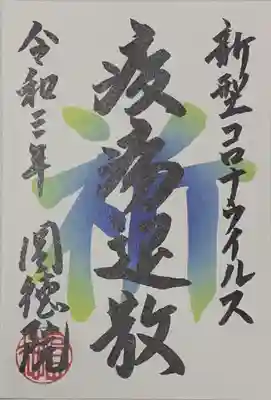 新型コロナウイルス
疫病退散
祈
令和三年